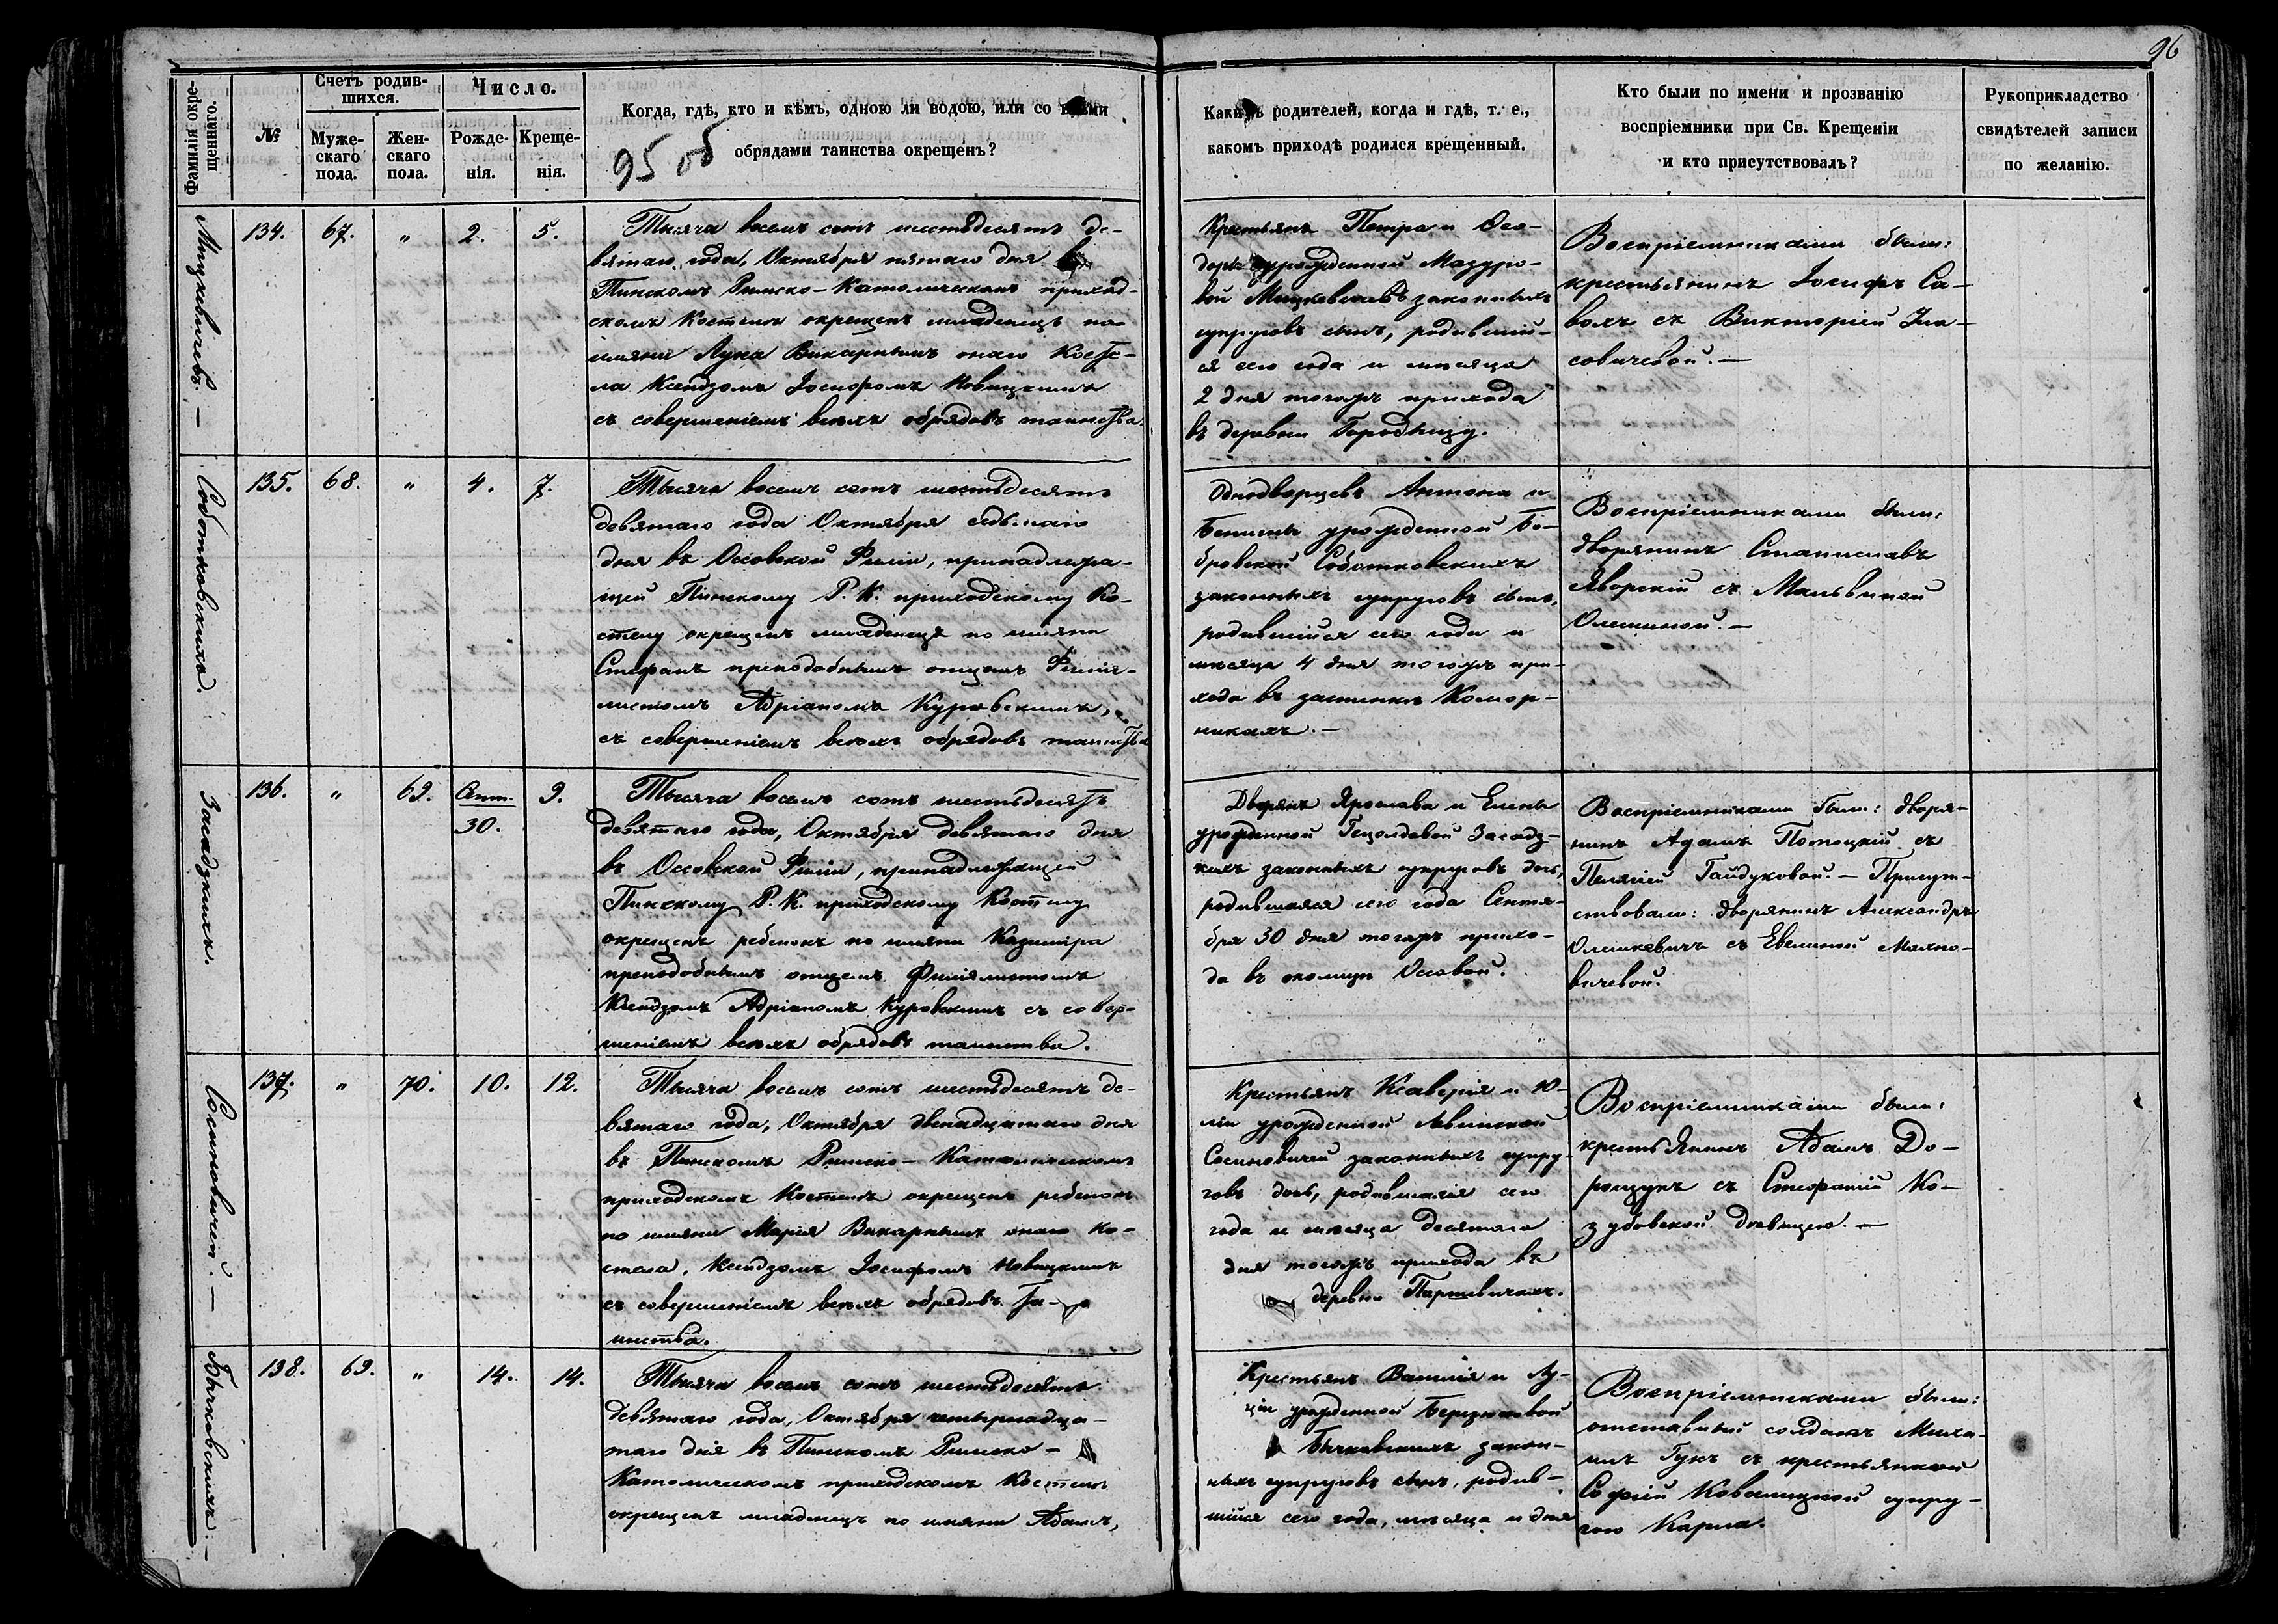 96
Фамилія окре-
щеннаго.
№
Счетъ родив-
шихся.
Муже-
скаго
пола.
Жен-
скаго
пола.
Число.
Рожде-
нія.
Креще-
нія.
Когда, гдѣ, кто и кѣмъ, одною ли водою, или со всѣми
обрядами таинства окрещенъ?
95 об
Какихъ родителей, когда и гдѣ, т. е.,
какомъ приходѣ родился крещенный.
Кто были по имени и прозванію
воспріемники при Св. Крещеніи
и кто присутствовалъ?
Рукоприкладство
свидѣтелей записи
по желанію.
Мицкевичевъ. —
134. 67. „ 2. 5.
Тысяча восемь сотъ шестьдесятъ де-
вятаго года, Октября пятаго дня въ
Пинскомъ Римско-Католическомъ приход-
скомъ Костелѣ окрещенъ младенецъ по
имяни Лука Викарнымъ онаго Косте-
ла Ксендзомъ Іосифомъ Новицкимъ
съ совершеніемъ всѣхъ обрядовъ таинства.
Крестьянъ Петра и Ѳео-
доры урожденной Мазуро-
вой Мицкевичевъ законныхъ
супруговъ сынъ, родивший-
ся сего года и мѣсяца
2 дня тогожъ прихода
въ деревни Городищу.
Воспріемниками были:
крестьянинъ Іосифъ Са-
вохъ съ Викторіей
совичевой. —
Соботковскихъ.
135. 68. „ 4. 7.
Тысяча восемь сотъ шестьдесятъ
девятаго года Октября седьмаго
дня въ Оссовской Филіи, принадлежа-
щей Пинскому Р. К. приходскому Ко-
стелу окрещенъ младенецъ по имяни
Стефанъ преподобнымъ отцемъ Филія-
листомъ Адріаномъ Куровскимъ,
съ совершеніемъ всѣхъ обрядовъ таинства
Однодворцевъ Антона и
урожденной Бо-
бровской Соботковскихъ
законныхъ супруговъ сынъ,
родившийся сего года и
мѣсяца 4 дня тогожъ при-
хода въ застѣнкѣ Комор-
никахъ. —
Воспріемниками были:
дворянинъ Станиславъ
Яворскій съ Мальвиной
Олешиной. —
Засадзкихъ.
136. „ 69. Сент. 30. 9.
Тысяча восемь сотъ шестьдесятъ
девятаго года, Октября девятаго дня
въ Оссовской Филіи, принадлежащей
Пинскому Р. К. приходскому Костелу
окрещенъ ребенокъ по имяни Казимира
преподобнымъ отцемъ Филіялистомъ
Ксендзомъ Адріаномъ Куровскимъ съ совер-
шеніемъ всѣхъ обрядовъ таинства.
Дворянъ Ярослава и Елены
урожденной Гецолдовой Засадз-
кихъ законныхъ супруговъ дочь,
родившаяся сего года Сентя-
бря 30 дня тогожъ прихо-
да въ околицѣ Оссовой.
Воспріемниками были: дворя-
нинъ Адамъ Потоцкій съ
Пелягіей Гайдуковой. — Присут-
ствовали: дворянинъ Александръ
Олешкевичъ съ Евелиной Махно-
вичевой.
Сосиновичей. —
137. „ 70. 10. 12.
Тысяча восемь сотъ шестьдесятъ де-
вятаго года, Октября двенадцатаго дня
въ Пинскомъ Римско-Католическомъ
приходскомъ Костелѣ окрещенъ ребенокъ
по имяни Марія Викарнымъ онаго Ко-
стела, Ксендзомъ Іосифомъ Новицкимъ
съ совершеніемъ всѣхъ обрядовъ та-
инства.
Крестьянъ Ксаверія и Ю-
ліи урожденной Левинской
Сосиновичей законныхъ супру-
говъ дочь, родившаяся сего
года и мѣсяца десятаго
дня тогожъ прихода въ
деревни Паршевичахъ.
Воспріемниками были:
крестьянинъ Адамъ До-
рощукъ съ Стефаніей Ко-
зубовской дѣвицею. —
Бычковскихъ. —
138. 69. „ 14. 14.
Тысяча восемь сотъ шестьдесятъ
девятаго года, Октября четырнадца-
таго дня въ Пинскомъ Римско-
Католическомъ приходскомъ Костелѣ
окрещенъ младенецъ по имяни Адамъ,
Крестьянъ Василія и Лу-
ціи урожденной Березюковой
Бычковскихъ закон-
ныхъ супруговъ сынъ, родив-
шийся сего года, мѣсяца и дня
Воспріемниками были:
отставный солдатъ Миха-
илъ Гукъ съ крестьянкой
Софіей Ковалицкой супру-
гою Карла.